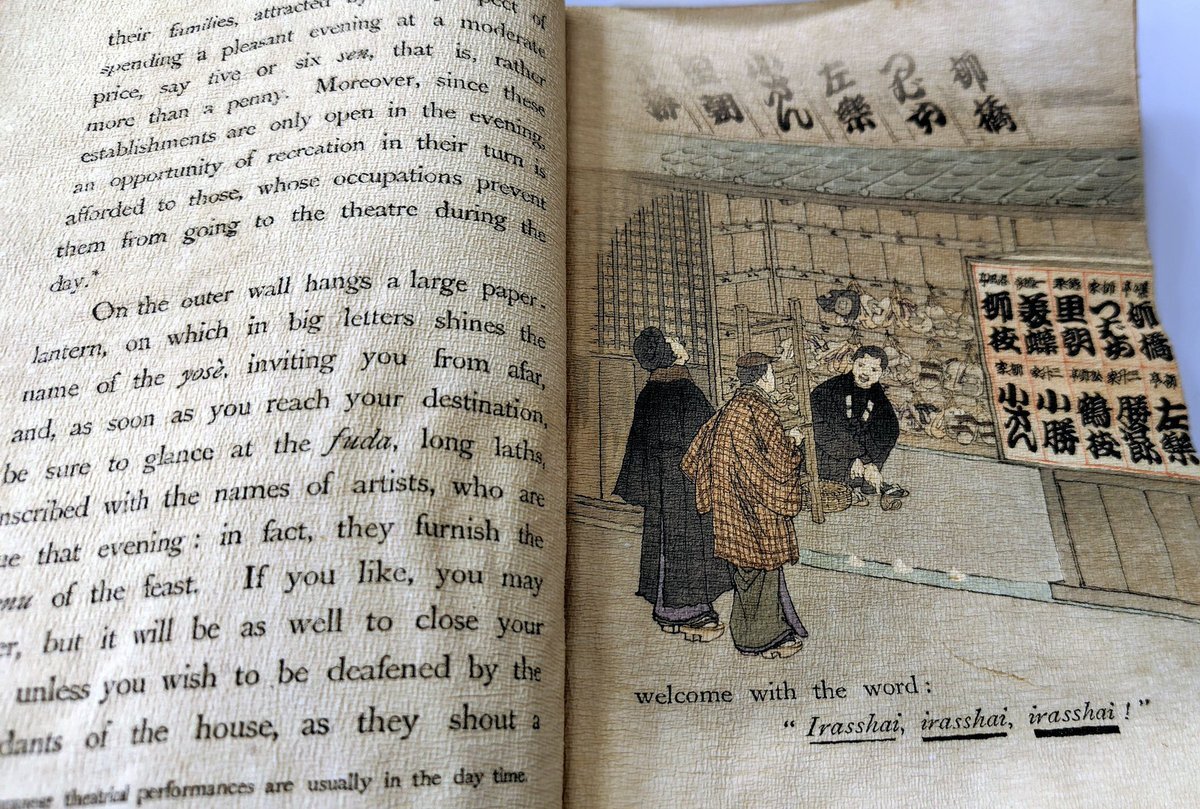 their families, attracted by pect of
spending a pleasant evening at a moderate
price, say five or six sen, that is, rather
more than a penny. Moreover, since these
establishments are only open in the evening,
an opportunity of recreation in their turn is
afforded to those, whose occupations prevent
them from going to the theatre during the
day.*
On the outer wall hangs a large paper-
lantern, on which in big letters shines the
name of the yosè, inviting you from afar,
and, as soon as you reach your destination,
be sure to glance at the fuda, long laths,
nscribed with the names of artists, who are
ue that evening: in fact, they furnish the
enu of the feast. If you like, you may
er, but it will be as well to close your
unless you wish to be deafened by the
dants of the house, as they shout a
theatrical performances are usually in the day time.
柳橋
つばめ
左樂
小さん
里朝
柳橋
つばめ
里朝
美蝶
柳枝
左樂
勝次郎
鶴枝
小勝
小さん
welcome with the word:
“ Irasshai, irasshai, irasshai ! ”